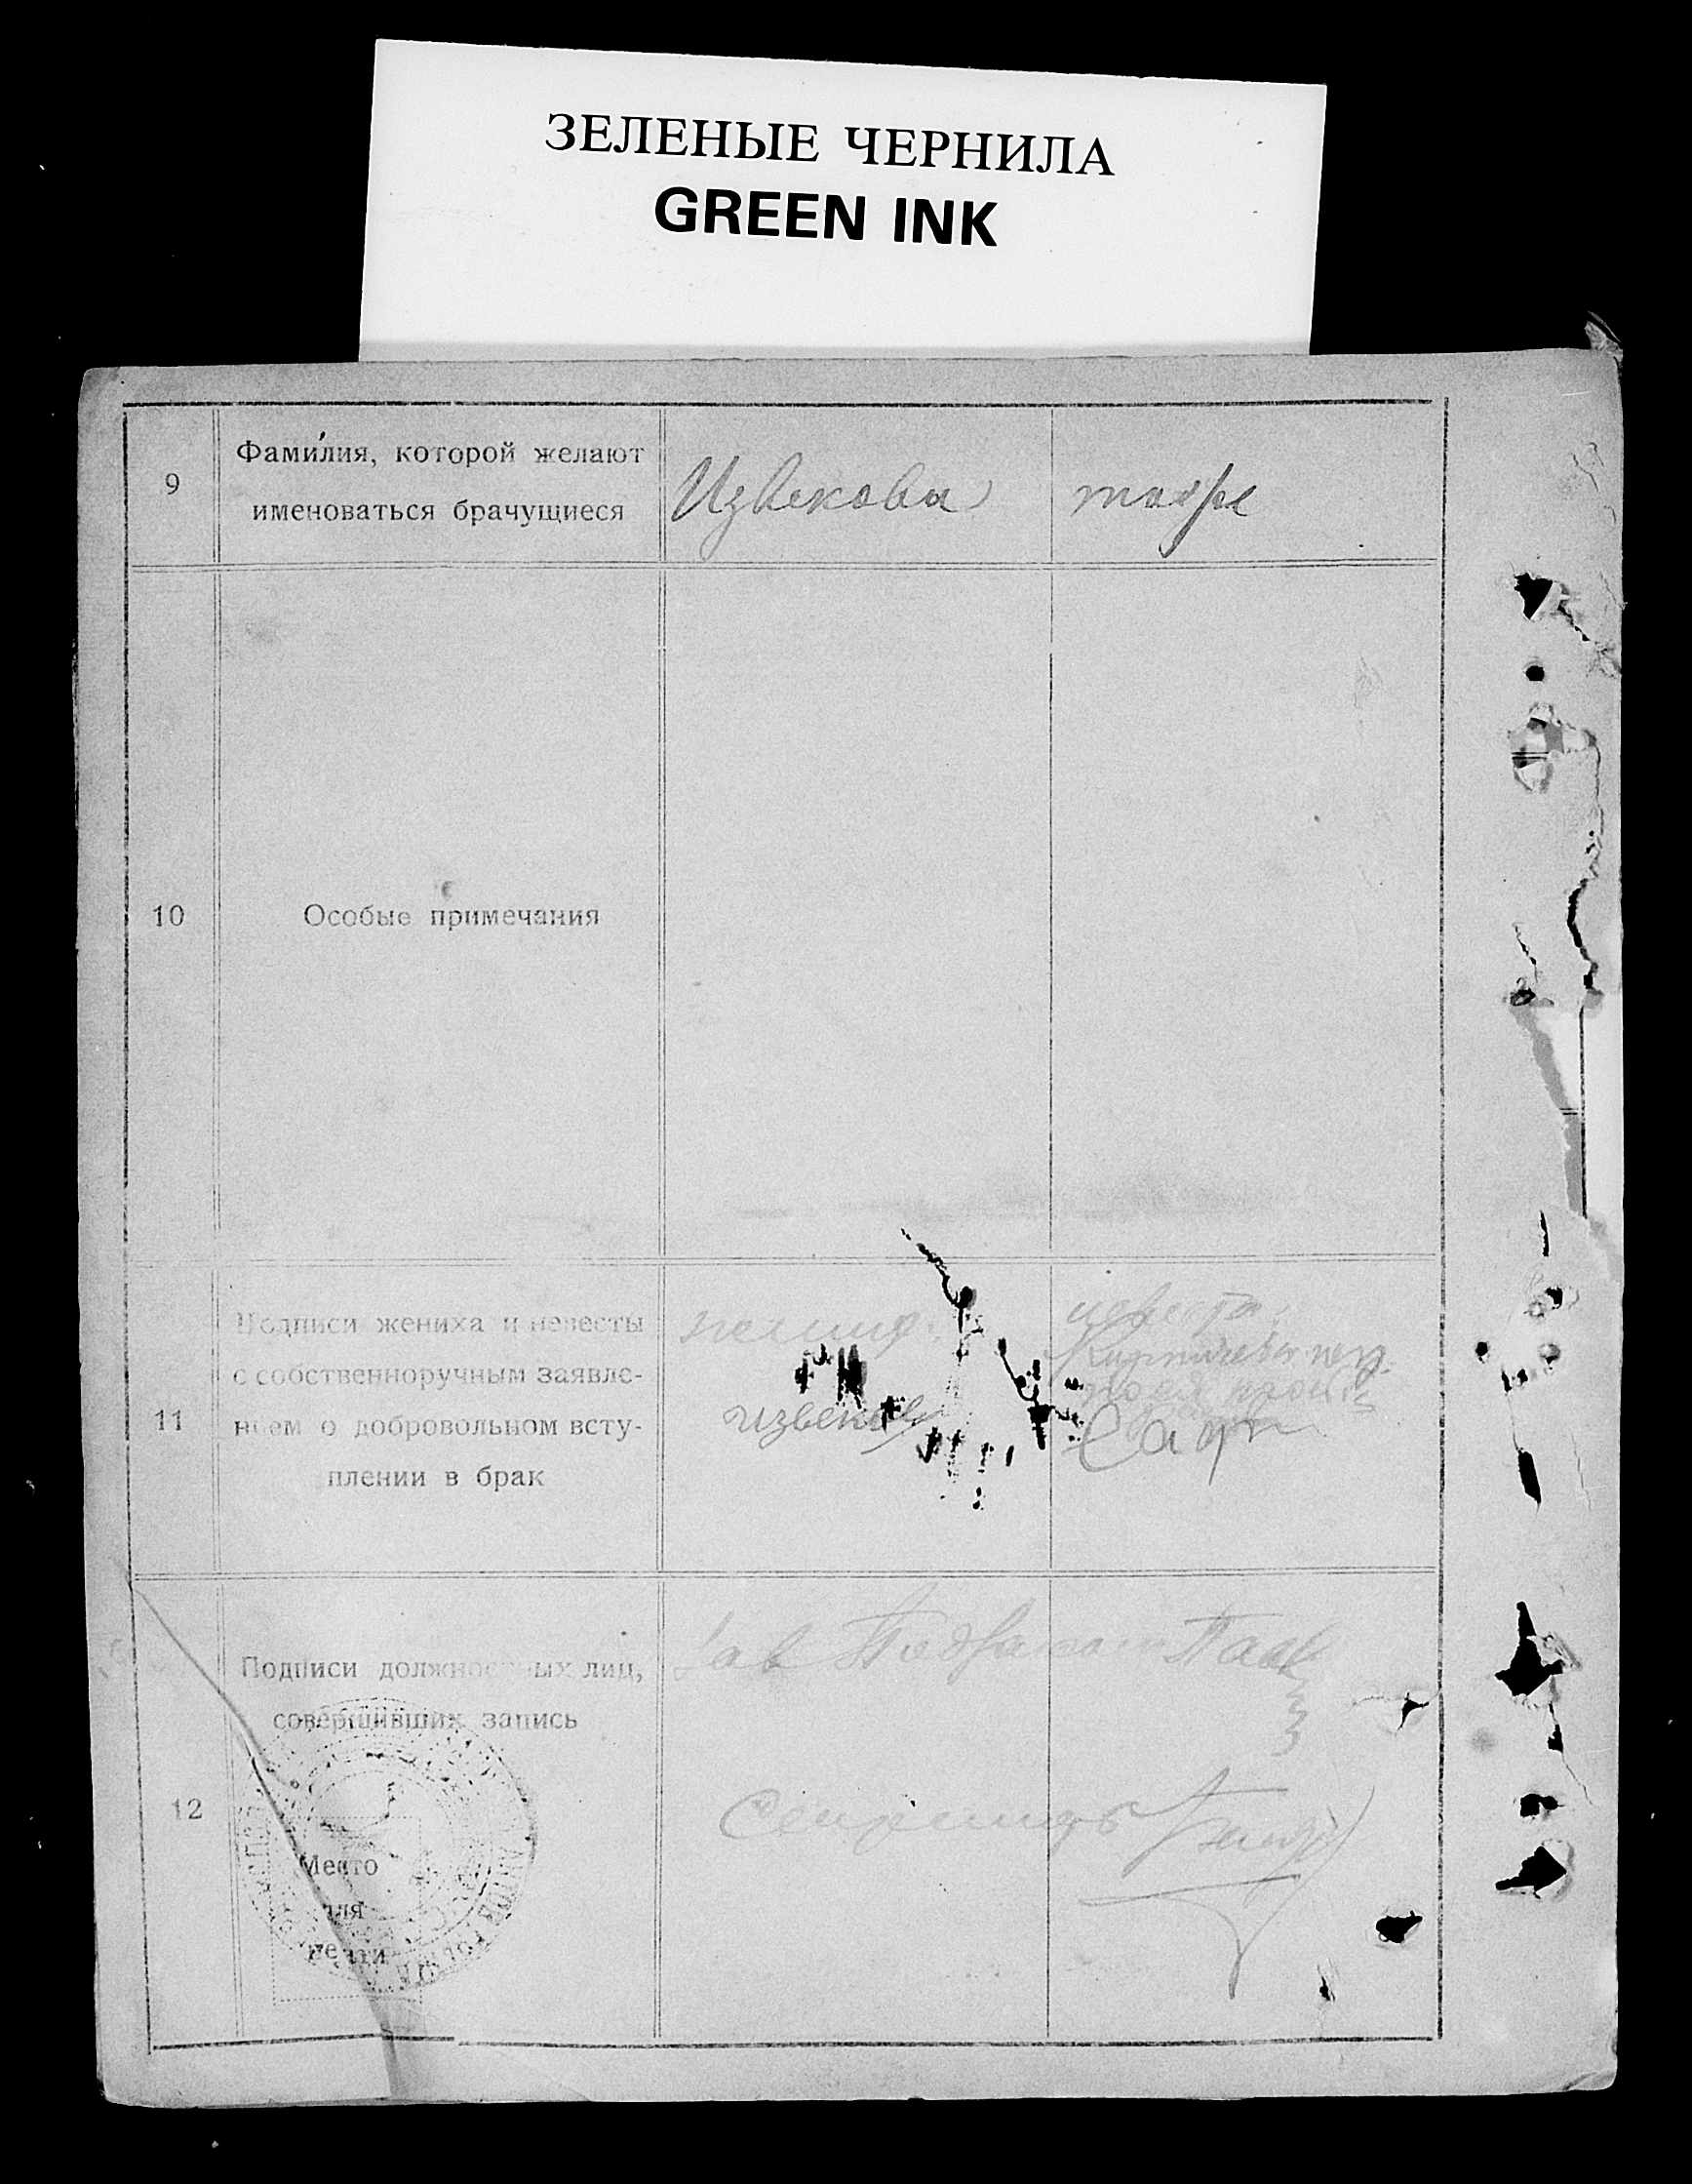 ЗЕЛЕНЫЕ ЧЕРНИЛА
GREEN INK
9
Фамилия, которой желают
именоваться брачущиеся
Извекова
тоже
10
Особые примечания
11
Подписи жениха и невесты
с собственноручным заявле-
нием о добровольном всту-
плении в брак
жених
извеков
невеста
12
Подписи должностных лиц,
совершивших запись
Место
для
печати
Зав
Секретарь